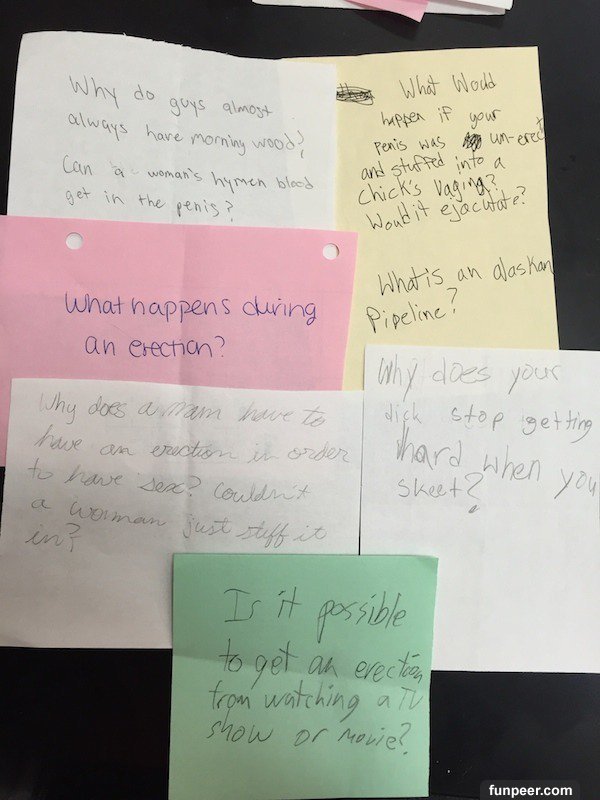 Why do guys almost
always have morning wood?
Can a woman's hymen blood
get in the penis?
What Would
happen if your
penis was un-erect
and stuffed into a
chick's vagina?
Would it ejacutate?
What is an alaskan
Pipeline?
What happens during
an erection?
Why does a mam have to
have an erection in order
to have sex? Couldn't
a woman just stuff it
in?
Why does your
dick stop getting
hard when you
skeet?
Is it possible
to get an erection
from watching a TV
show or movie?
funpeer.com